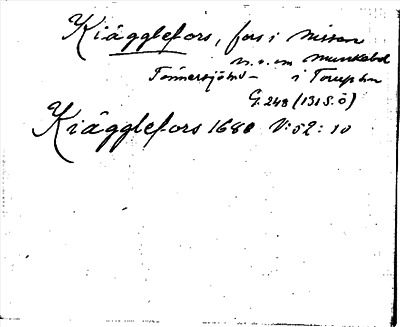 Kiägglefors, fors i Nissan
n.v. om Munkabol
Tönnersjöhd – i Torup sn
G. 248 (131 S.Ö)
Kiägglefors 1680 V:52:10